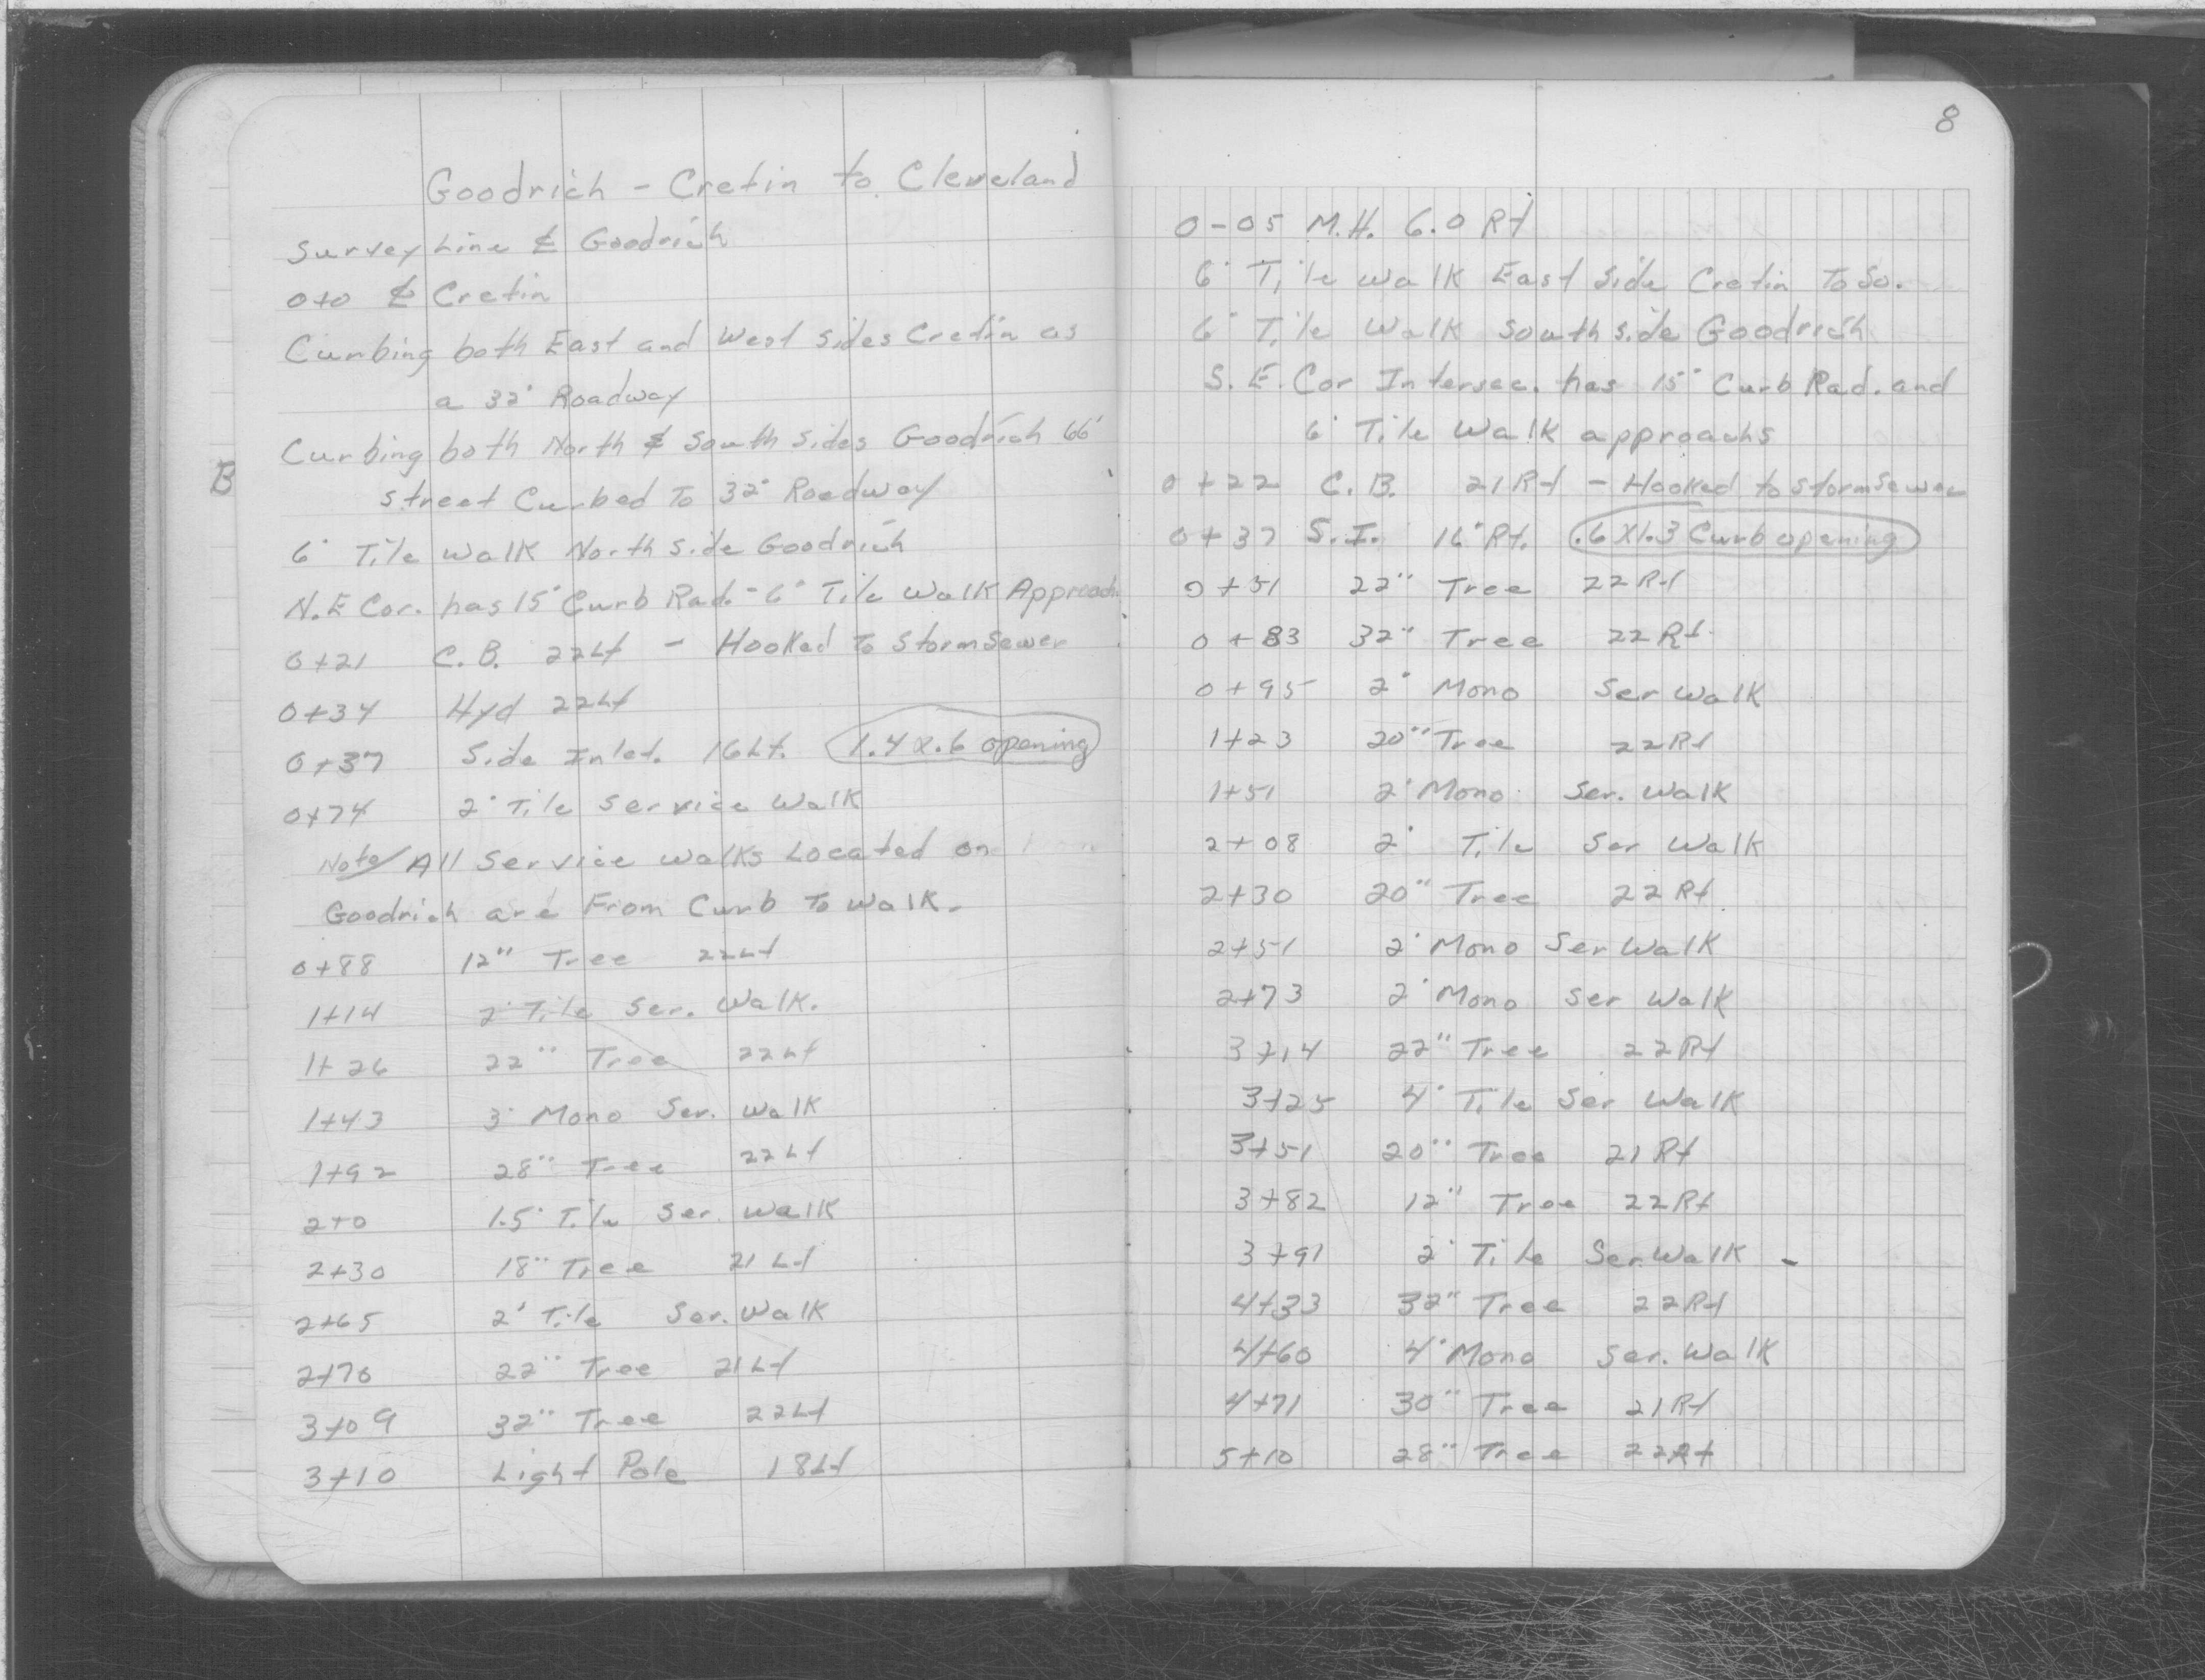 Goodrich - Cretin to Cleveland
Survey Line ℄ Goodrich
0+0 ℄ Cretin
Curbing both East and West Sides Cretin as
a 32' Roadway
Curbing both North & South Sides Goodrich 66'
B
Street Curbed To 32' Roadway
6' Tile Walk North Side Goodrich
N.E Cor. has 15' Curb Rad. - 6' Tile Walk Approach
0+21 C.B. 22Lt - Hooked To Storm Sewer
0+34 Hyd 22Lt
0+37 Side Inlet. 16Lt. 1.4 x .6 opening
0+74 2' Tile Service Walk
Note/ All Service walks Located on
Goodrich are From Curb To Walk.
0+88 12" Tree 22Lt
1+14 2' Tile Ser. Walk.
1+26 22" Tree 22Lt
1+43 3' Mono Ser. Walk
1+92 28" Tree 22Lt
2+0 1.5' Tile Ser. Walk
2+30 18" Tree 21Lt
2+65 2' Tile Ser. Walk
2+70 22" Tree 21Lt
3+09 32" Tree 22Lt
3+10 Light Pole 18Lt
8
0-05 M.H. 6.0 Rt
6' Tile Walk East Side Cretin To So.
6' Tile Walk South Side Goodrich
S.E. Cor Intersec. has 15' Curb Rad. and
6' Tile Walk approachs
0+22 C.B. 21Rt - Hooked to Storm Sewer
0+37 S.I. 16' Rt. .6 x 1.3 Curb opening
0+51 22" Tree 22Rt
0+83 32" Tree 22Rt.
0+95 2' Mono Ser Walk
1+23 20" Tree 22Rt
1+51 2' Mono Ser. Walk
2+08 2' Tile Ser Walk
2+30 20" Tree 22Rt
2+51 2' Mono Ser Walk
2+73 2' Mono Ser Walk
3+14 22" Tree 22Rt
3+25 4' Tile Ser Walk
3+51 20" Tree 21Rt
3+82 12" Tree 22Rt
3+91 2' Tile Ser. Walk -
4+33 32" Tree 22Rt
4+60 4' Mono Ser. Walk
4+71 30" Tree 21Rt
5+10 28" Tree 22Rt